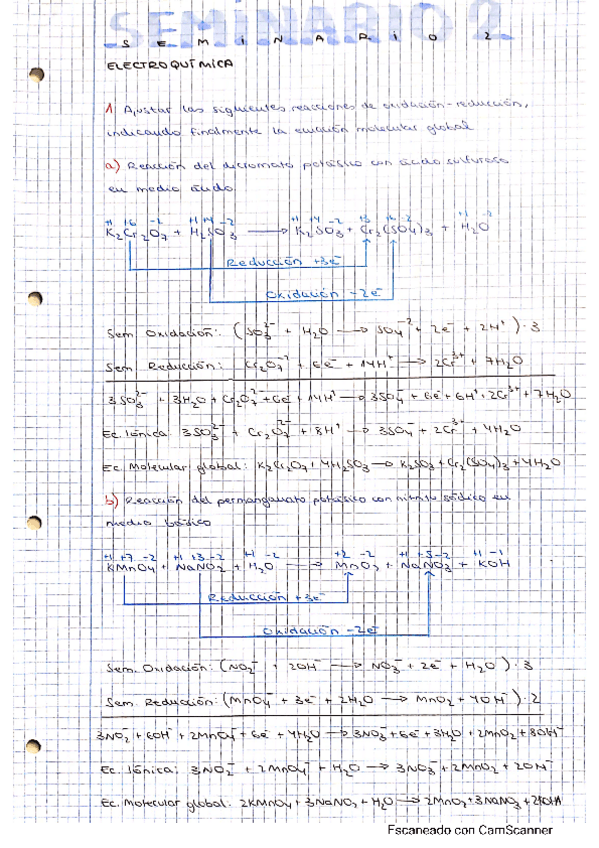 SEMINARIO 2
S E M I N A R I O 2
ELECTROQUÍMICA
1. Ajustar las siguientes reacciones de oxidación-reducción,
indicando finalmente la ecuación molecular global
a) Reacción del dicromato potásico con ácido sulfuroso
en medio ácido
+1 +6 -2 +1 +4 -2 +1 +4 -2 +3 +6 -2 +1 -2
K₂Cr₂O₇ + H₂SO₃ → K₂SO₃ + Cr₂(SO₄)₃ + H₂O
Reducción +3e⁻
Oxidación -2e⁻
Sem. Oxidación: (SO₃²⁻ + H₂O → SO₄⁻² + 2e⁻ + 2H⁺)·3
Sem. Reducción: Cr₂O₇⁻² + 6e⁻ + 14H⁺ → 2Cr³⁺ + 7H₂O
3SO₃²⁻ + 3H₂O + Cr₂O₇²⁻ + 6e⁻ + 14H⁺ → 3SO₄⁻ + 6e⁻ + 6H⁺ + 2Cr³⁺ + 7H₂O
Ec. Iónica: 3SO₃²⁻ + Cr₂O₇²⁻ + 8H⁺ → 3SO₄⁻ + 2Cr³⁺ + 4H₂O
Ec. Molecular global: K₂Cr₂O₇ + 4H₂SO₃ → K₂SO₃ + Cr₂(SO₄)₃ + 4H₂O
b) Reacción del permanganato potásico con nitrito sódico en
medio básico
+1 +7 -2 +1 +3 -2 +1 -2 +2 -2 +1 +5 -2 +1 -1
KMnO₄ + NaNO₂ + H₂O → MnO₂ + NaNO₃ + KOH
Reducción +3e⁻
Oxidación -2e⁻
Sem. Oxidación: (NO₂⁻ + 2OH⁻ → NO₃⁻ + 2e⁻ + H₂O)·3
Sem. Reducción: (MnO₄⁻ + 3e⁻ + 2H₂O → MnO₂ + 4OH⁻)·2
3NO₂ + 6OH⁻ + 2MnO₄⁻ + 6e⁻ + 4H₂O → 3NO₃⁻ + 6e⁻ + 3H₂O + 2MnO₂ + 8OH⁻
Ec. Iónica: 3NO₂⁻ + 2MnO₄⁻ + H₂O → 3NO₃⁻ + 2MnO₂ + 2OH⁻
Ec. Molecular global: 2KMnO₄ + 3NaNO₂ + H₂O → 2MnO₂ + 3NaNO₃ + 2KOH
Escaneado con CamScanner